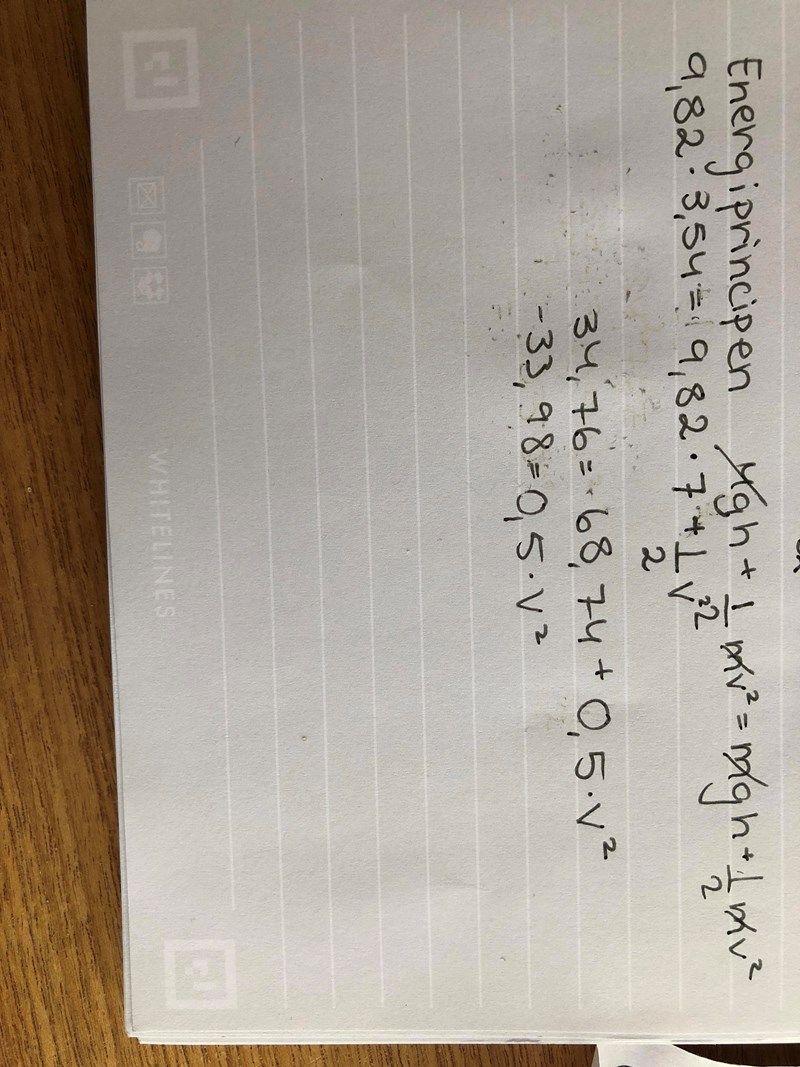 Energiprincipen mgh + 1/2 mv² = mgh + 1/2 mv²
9,82 · 3,54 = 9,82 · 7 + 1/2 v²
34,76 = 68,74 + 0,5 · v²
-33,98 = 0,5 · v²
WHITELINES